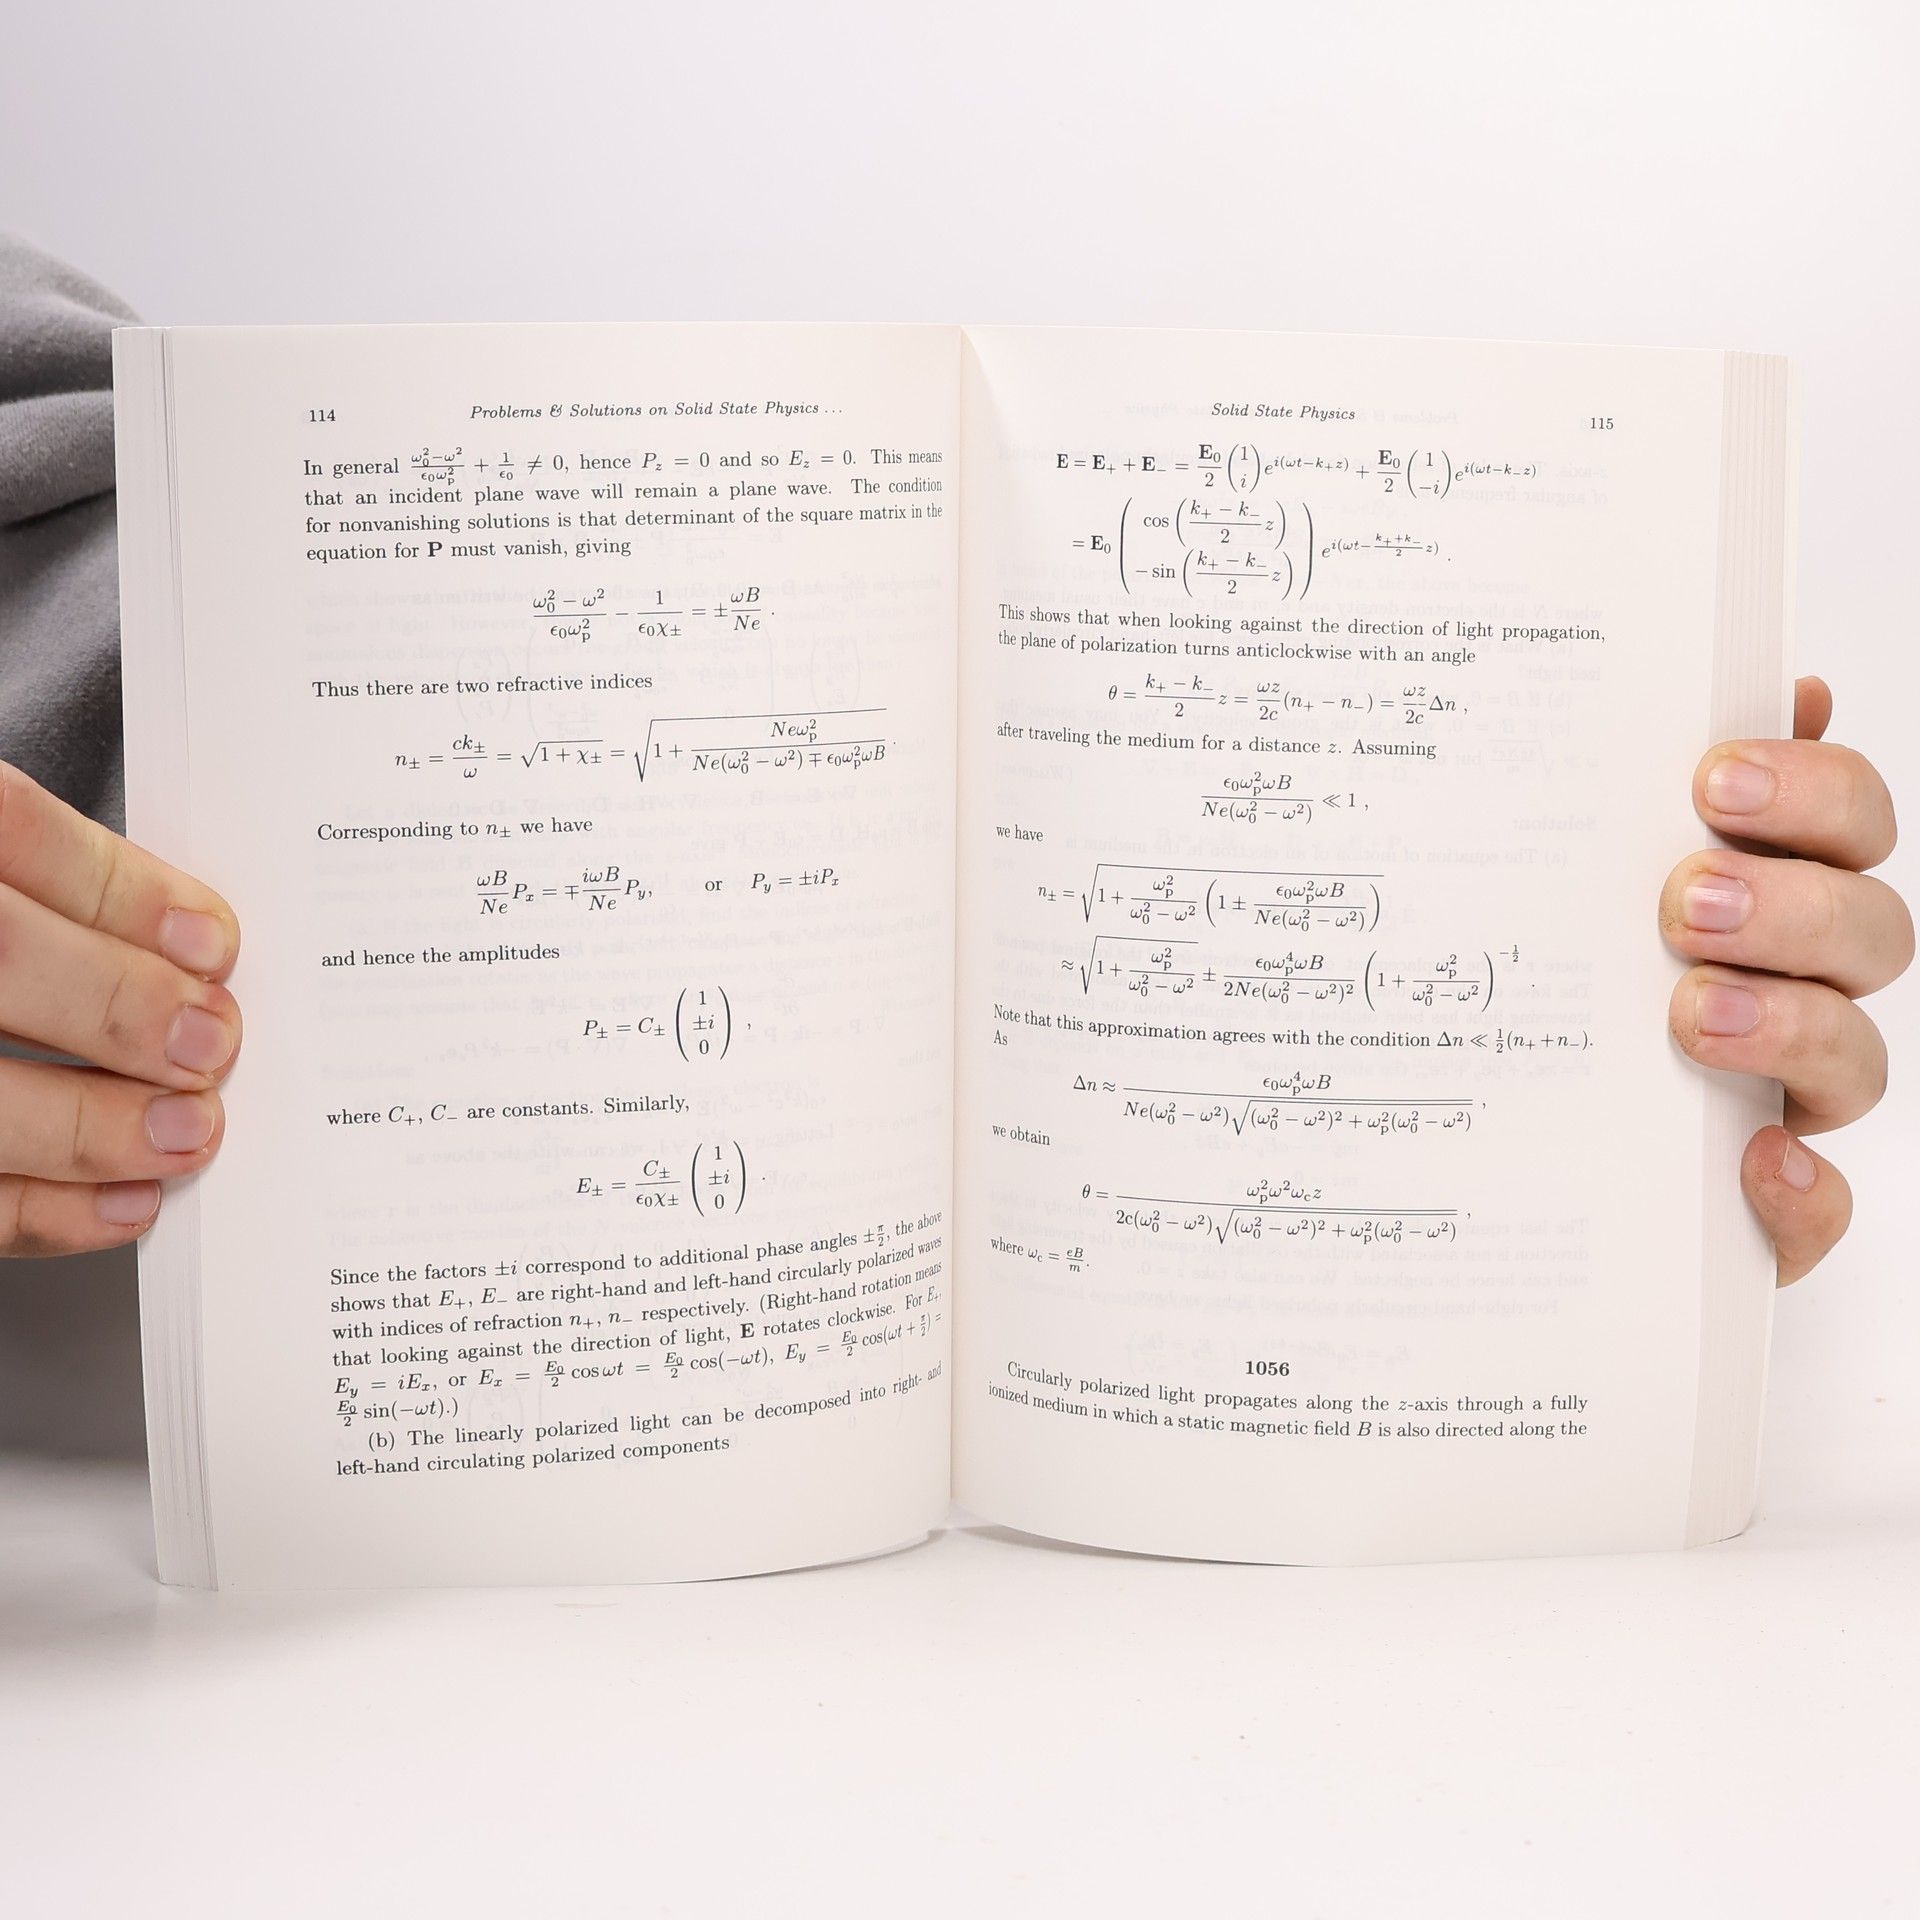 114 Problems & Solutions on Solid State Physics ...
In general $\frac{\omega_0^2-\omega^2}{\epsilon_0\omega_p^2} + \frac{1}{\epsilon_0} \neq 0$, hence $P_z = 0$ and so $E_z = 0$. This means
that an incident plane wave will remain a plane wave. The condition
for nonvanishing solutions is that determinant of the square matrix in the
equation for **P** must vanish, giving
$\frac{\omega_0^2-\omega^2}{\epsilon_0\omega_p^2} - \frac{1}{\epsilon_0\chi_\pm} = \pm\frac{\omega B}{Ne}$ .
Thus there are two refractive indices
$n_\pm = \frac{ck_\pm}{\omega} = \sqrt{1+\chi_\pm} = \sqrt{1+\frac{Ne\omega_p^2}{Ne(\omega_0^2-\omega^2)\mp\epsilon_0\omega_p^2\omega B}}$ .
Corresponding to $n_\pm$ we have
$\frac{\omega B}{Ne}P_x = \mp\frac{i\omega B}{Ne}P_y$, or $P_y = \pm iP_x$
and hence the amplitudes
$P_\pm = C_\pm \begin{pmatrix} 1 \\ \pm i \\ 0 \end{pmatrix}$ ,
where $C_+$, $C_-$ are constants. Similarly,
$E_\pm = \frac{C_\pm}{\epsilon_0\chi_\pm} \begin{pmatrix} 1 \\ \pm i \\ 0 \end{pmatrix}$ .
Since the factors $\pm i$ correspond to additional phase angles $\pm\frac{\pi}{2}$, the above
shows that $E_+$, $E_-$ are right-hand and left-hand circularly polarized waves
with indices of refraction $n_+$, $n_-$ respectively. (Right-hand rotation means
that looking against the direction of light, **E** rotates clockwise. For $E_+$,
$E_y = iE_x$, or $E_x = \frac{E_0}{2}\cos\omega t = \frac{E_0}{2}\cos(-\omega t)$, $E_y = \frac{E_0}{2}\cos(\omega t+\frac{\pi}{2}) =$
$\frac{E_0}{2}\sin(-\omega t)$.)
(b) The linearly polarized light can be decomposed into right- and
left-hand circulating polarized components
Solid State Physics 115
$\mathbf{E} = \mathbf{E}_+ + \mathbf{E}_- = \frac{\mathbf{E}_0}{2}\begin{pmatrix} 1 \\ i \end{pmatrix}e^{i(\omega t-k_+z)} + \frac{\mathbf{E}_0}{2}\begin{pmatrix} 1 \\ -i \end{pmatrix}e^{i(\omega t-k_-z)}$
$= \mathbf{E}_0\begin{pmatrix} \cos\left(\frac{k_+-k_-}{2}z\right) \\ -\sin\left(\frac{k_+-k_-}{2}z\right) \end{pmatrix}e^{i(\omega t-\frac{k_++k_-}{2}z)}$ .
This shows that when looking against the direction of light propagation,
the plane of polarization turns anticlockwise with an angle
$\theta = \frac{k_+-k_-}{2}z = \frac{\omega z}{2c}(n_+-n_-) = \frac{\omega z}{2c}\Delta n$ ,
after traveling the medium for a distance $z$. Assuming
$\frac{\epsilon_0\omega_p^2\omega B}{Ne(\omega_0^2-\omega^2)} \ll 1$ ,
we have
$n_\pm = \sqrt{1+\frac{\omega_p^2}{\omega_0^2-\omega^2}\left(1\pm\frac{\epsilon_0\omega_p^2\omega B}{Ne(\omega_0^2-\omega^2)}\right)}$
$\approx \sqrt{1+\frac{\omega_p^2}{\omega_0^2-\omega^2}} \pm \frac{\epsilon_0\omega_p^4\omega B}{2Ne(\omega_0^2-\omega^2)^2}\left(1+\frac{\omega_p^2}{\omega_0^2-\omega^2}\right)^{-\frac{1}{2}}$ .
Note that this approximation agrees with the condition $\Delta n \ll \frac{1}{2}(n_++n_-)$.
As
$\Delta n \approx \frac{\epsilon_0\omega_p^4\omega B}{Ne(\omega_0^2-\omega^2)\sqrt{(\omega_0^2-\omega^2)^2+\omega_p^2(\omega_0^2-\omega^2)}}$ ,
we obtain
$\theta = \frac{\omega_p^2\omega^2\omega_c z}{2c(\omega_0^2-\omega^2)\sqrt{(\omega_0^2-\omega^2)^2+\omega_p^2(\omega_0^2-\omega^2)}}$ ,
where $\omega_c = \frac{eB}{m}$.
1056
Circularly polarized light propagates along the $z$-axis through a fully
ionized medium in which a static magnetic field $B$ is also directed along the